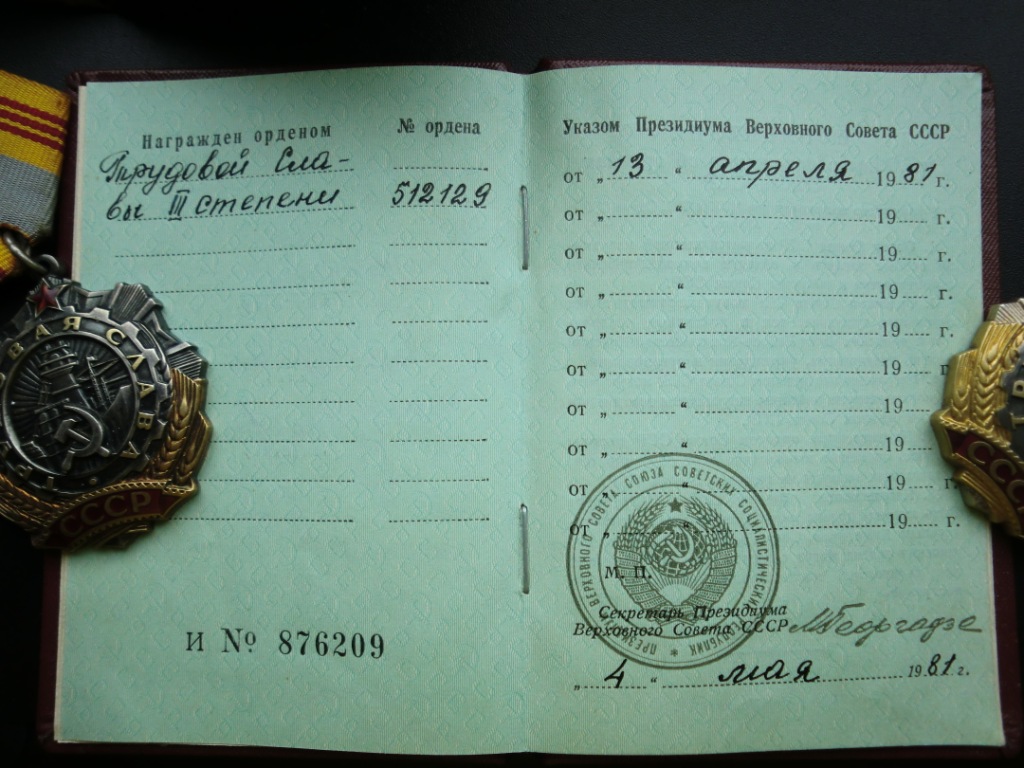 Награжден орденом № ордена
Трудовой Сла-
вы III степени 512129
И № 876209
Указом Президиума Верховного Совета СССР
от „13“ апреля 1981 г.
от „ “ 19 г.
от „ “ 19 г.
от „ “ 19 г.
от „ “ 19 г.
от „ “ 19 г
от „ “ 19
от „ “ 19
от „ “ 19 г
от „ “ 19 г.
М. П.
Секретарь Президиума
Верховного Совета СССР МГеоргадзе
„4“ мая 1981 г.
ВЕРХОВНОГО СОВЕТА СОЮЗА СОВЕТСКИХ СОЦИАЛИСТИЧЕСКИХ
ВАЯ СЛАВА
СССР
СССР